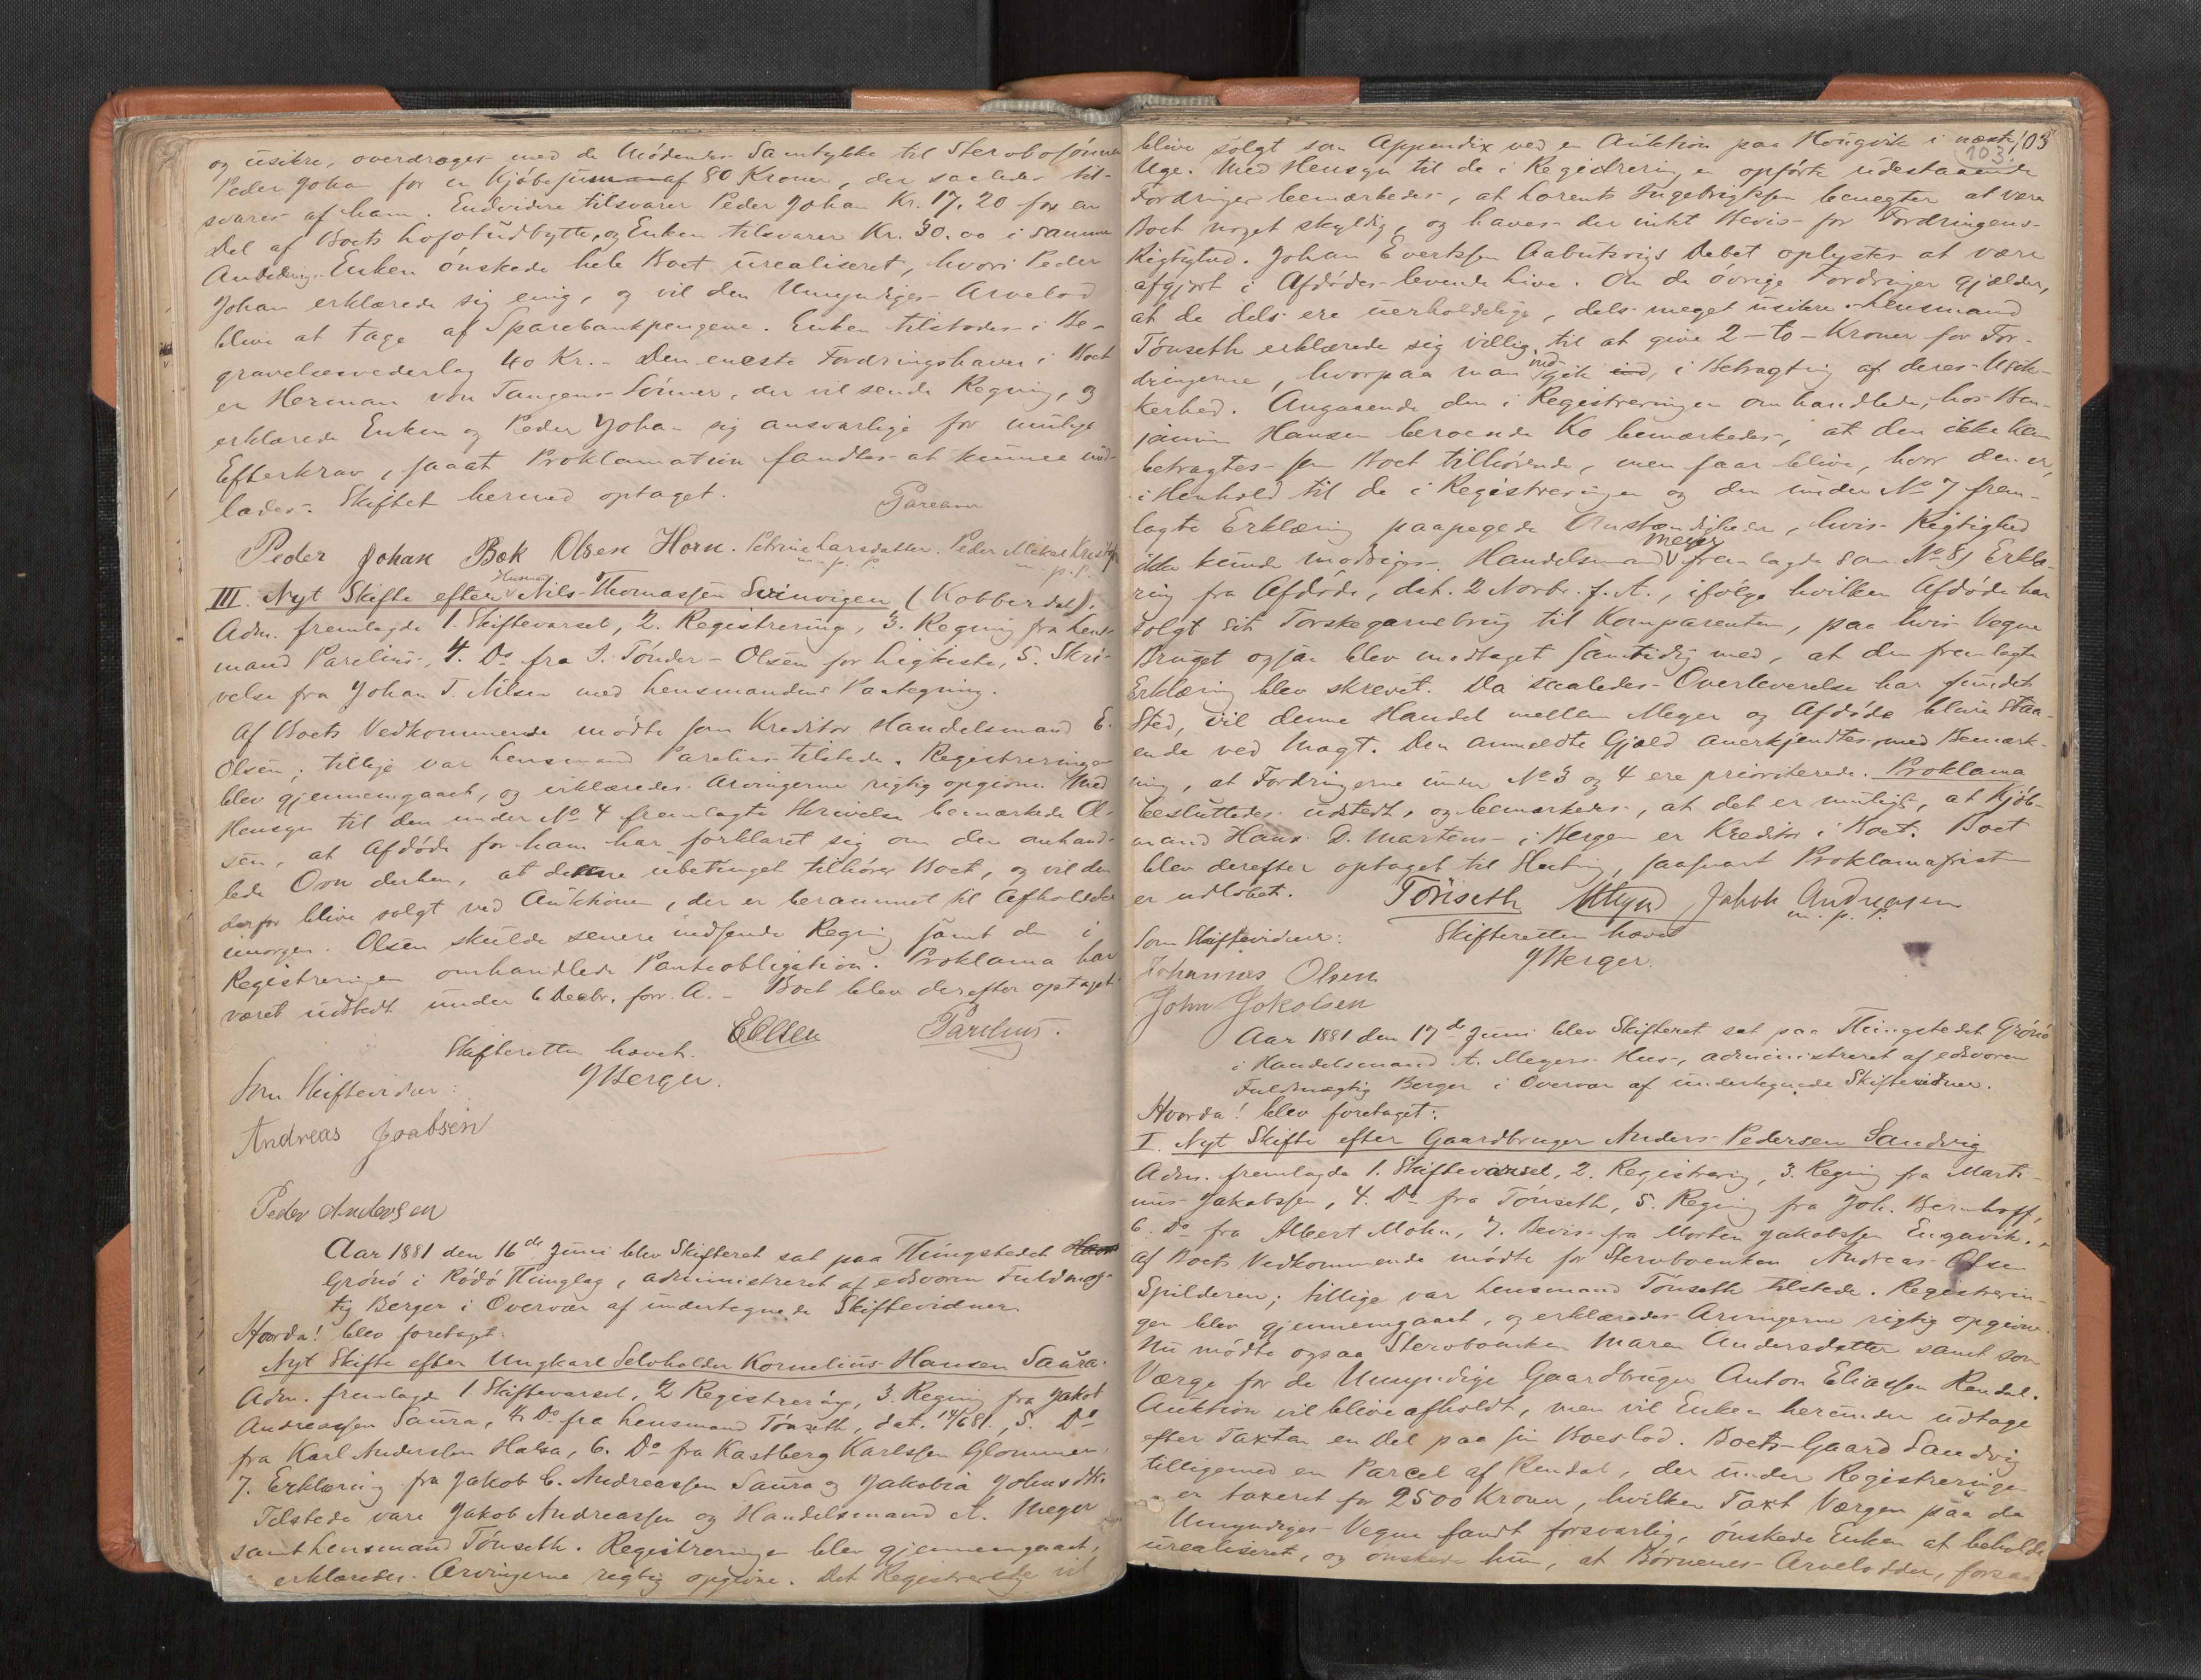 og usikre, overdrages med de Mødendes Samtykke til Stervbosønnen
Peder Johan for en Kjøbesum af 80 Kroner, der saaledes til-
svares af ham. Endvidere tilsvarer Peder Johan Kr. 17.20 for en
Del af Boets Lofotudbytte, og Enken tilsvarer Kr. 30.00 i samme
Anledning. Enken ønskede hele Boet urealiseret, hvori Peder
Johan erklærede sig enig, og vil den Umyndiges Arvelod
blive at tage af Sparebankpengene. Enken tilstodes i Be-
gravelsesvederlag 40 Kr. - Den eneste Fordringshaver i Boet
er Herman von Tangens Sønner, der vil sende Regning, og
erklærede Enken og Peder Johan sig ansvarlige for mulige
Efterkrav, saaat Proklamation fandtes at kunne und-
lades. Skiftet hermed optaget.
Parelius
Peder Johan Bæk Olsen Horn. Petrine Larsdatter. Peder Mikal Krist
m. p. p. m. p. p.
III. Nyt Skifte efter Husmd Nils Thomassen Svinvigen (Kobberdal).
Adm. fremlagde 1. Skiftevarsel, 2. Registrering, 3. Regning fra Lens-
mand Parelius, 4. Do fra I. Tønder-Olsen for Ligkiste, 5. Skri-
velse fra Johan T. Nilsen med Lensmandens Paategning.
Af Boets Vedkommende mødte som Kreditor Handelsmand E.
Olsen; tillige var Lensmand Parelius tilstede. Registreringen
blev gjennemgaaet, og erklæredes Arvingerne rigtig opgivne. Med
Hensyn til den under No 4 fremlagte Skrivelse bemærkede Ol-
sen, at Afdøde for ham har forklaret sig om den omhand-
lede Ovn derhen, at denne ubetinget tilhører Boet, og vil den
derfor blive solgt ved Auktionen, der er berammet til Afholdelse
imorgen. Olsen skulde senere indsende Regning samt den i
Registreringen omhandlede Panteobligation. Proklama har
været udstedt under 6 Decbr. forr. A. - Boet blev derefter optaget.
EOlsen Parelius.
Skifteretten hævet.
JBerger.
Som Skiftevidner:
Andreas Joabsen
Peder Andersen
Aar 1881 den 16de Juni blev Skifteret sat paa Thingstedet
Grønø i Rødø Thinglag, administreret af edsvoren Fuldmæg-
tig Berger i Overvær af undertegnede Skiftevidner.
Hvorda! blev foretaget:
Nyt Skifte efter Ungkarl Selvholder Kornelius Hansen Saura.
Adm. fremlagde 1. Skiftevarsel, 2. Registrering, 3. Regning fra Jakob
Andreassen Saura, 4. Do fra Lensmand Tønseth, dat. 14/6 81, 5. Do
fra Karl Anderssen Halsa, 6. Do fra Kastberg Karlssen Glommen,
7. Erklæring fra Jakob C. Andreassen Saura og Jakobia Johnsdtr.
Tilstede vare Jakob Andreassen og Handelsmand A. Meyer
samt Lensmand Tønseth. Registreringen blev gjennemgaaet,
erklæredes Arvingerne rigtig opgivne. Det Registrerede vil
103
103.
blive solgt som Appendix ved en Auktion paa Kongvik i næste
Uge. Med Hensyn til de i Registreringen opførte udestaaende
Fordringer bemærkedes, at Lorents Ingebrigtsen benegter at være
Boet noget skyldig, og haves der intet Bevis for Fordringens
Rigtighed. Johan Evertsen Aabutsvigs Debet oplystes at være
afgjort i Afdødes levende Live. Om de øvrige Fordringer gjælder,
at de dels ere uerholdelige, dels meget usikre. Lensmand
Tønseth erklærede sig villig til at give 2 - to - Kroner for For-
dringerne, hvorpaa man indgik ind, i Betragtning af deres Usik-
kerhed. Angaaende den i Registreringen omhandlede, hos Ben-
jamin Hansen beroende Ko bemærkedes, at den ikke kan
betragtes som Boet tilhørende, men faar blive, hvor den er,
i Henhold til de i Registreringen og den under No 7 frem-
lagte Erklæring paapegede Omstændigheder, hvis Rigtighed
ikke kunde modsiges. Handelsmand Meyer fremlagde som No 8) Erklæ-
ring fra Afdøde, dat. 2 Novbr. f. A., ifølge hvilken Afdøde har
solgt sit Torskegarnsbrug til Komparenten, paa hvis Vegne
Bruget ogsaa blev modtaget samtidig med, at den fremlagte
Erklæring blev skrevet. Da saaledes Overleverelse har fundet
Sted, vil denne Handel mellem Meyer og Afdøde blive staa-
ende ved Magt. Den anmeldte Gjæld anerkjendtes med Bemærk-
ning, at Fordringerne under No 3 og 4 ere prioriterede. Proklama
besluttedes udstedt, og bemærkedes, at det er muligt, at Kjøb-
mand Hans D. Martens i Bergen er Kreditor i Boet. Boet
blev derefter optaget til Slutning, saasnart Proklamafristen
er udløbet.
Tönseth AMeyer Jakob Andreasen
m. p. p.
Som Skiftevidner: Skifteretten hævet
JBerger.
Johannes Olsen
John Jokolsen
Aar 1881 den 17de Juni blev Skifteret sat paa Thingstedet Grønø
i Handelsmand A. Meyers Hus, administreret af edsvoren
Fuldmægtig Berger i Overvær af undertegnede Skiftevidner.
Hvorda! blev foretaget:
I. Nyt Skifte efter Gaardbruger Anders Pedersen Sandvig
Adm. fremlagde 1. Skiftevarsel, 2. Registrering, 3. Regning fra Marti-
nus Jakobssen, 4. Do fra Tønseth, 5. Regning fra Joh. Bernhoff,
6. Do fra Albert Mohn, 7. Bevis fra Morten Jakobssen Engavik.
Af Boets Vedkommende mødte for Stervboenken Andreas Olsen
Spilderen; tillige var Lensmand Tønseth tilstede. Registrerin-
gen blev gjennemgaaet, og erklæredes Arvingerne rigtig opgivne.
Nu mødte ogsaa Stervboenken Maren Andersdatter samt som
Værge for de Umyndige Gaardbruger Anton Eliassen Rendal.
Auktion vil blive afholdt, men vil Enken herunder udtage
efter Taxten en Del paa sin Boeslod. Boets Gaard Sandvig
tilligemed en Parcel af Rendal, der under Registreringen
er taxeret for 2500 Kroner, hvilken Taxt Værgen paa de
Umyndiges Vegne fandt forsvarlig, ønskede Enken at beholde
urealiseret, og ønskede hun, at Børnenes Arvelodder, forsaa